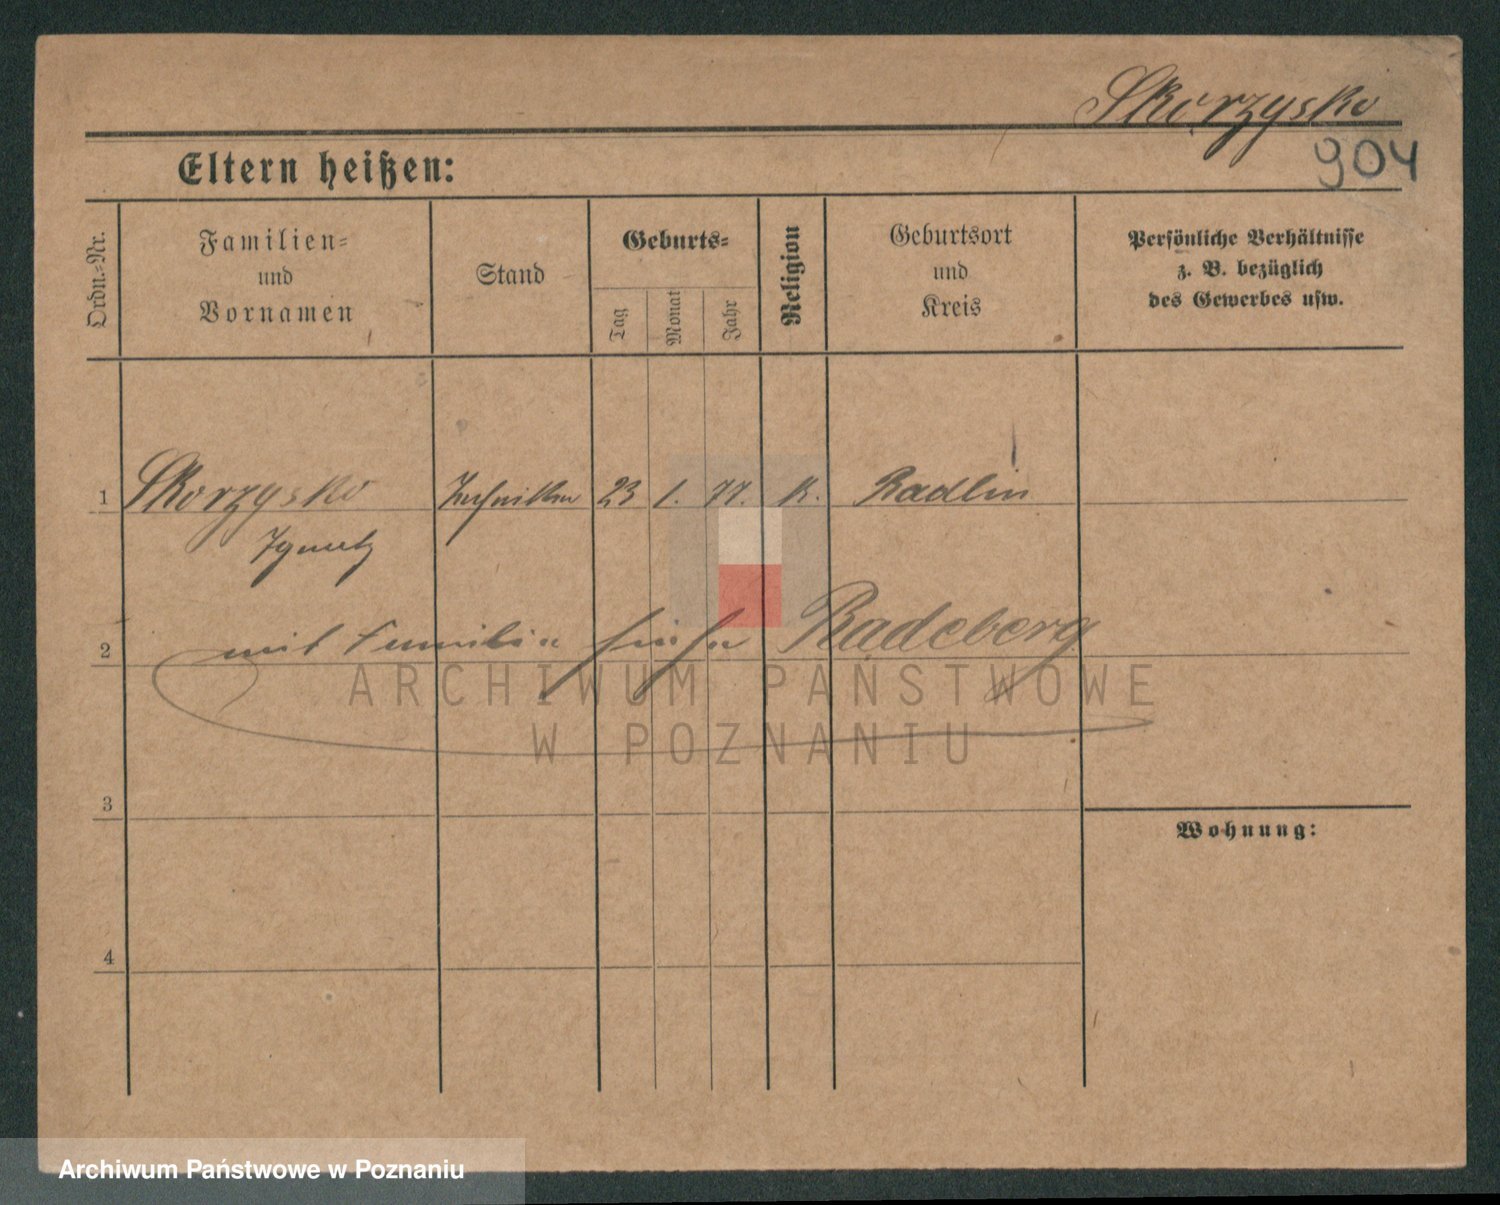 Skorzysko
904
Eltern heißen:
Ordn.-Nr.
Familien-
und
Vornamen
Stand
Geburts-
Tag
Monat
Jahr
Religion
Geburtsort
und
Kreis
Persönliche Verhältnisse
z. B. bezüglich
des Gewerbes usw.
1 Skorzysko Techniker 23 1. 77. K. Radlin
Ignatz
2 mit Familie Radeberg
ARCHIWUM PAŃSTWOWE
W POZNANIU
3
Wohnung:
4
Archiwum Państwowe w Poznaniu